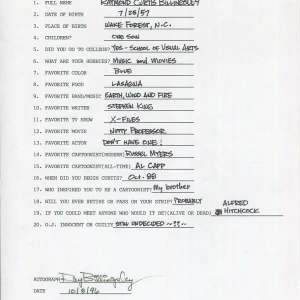 1. FULL NAME RAYMOND CURTIS BILLINGSLEY
2. DATE OF BIRTH 7/25/57
3. PLACE OF BIRTH WAKE FOREST, N.C.
4. CHILDREN? ONE SON
5. DID YOU GO TO COLLEGE? YES - SCHOOL OF VISUAL ARTS
6. WHAT ARE YOUR HOBBIES? MUSIC AND MOVIES
7. FAVORITE COLOR BLUE
8. FAVORITE FOOD LASAGNA
9. FAVORITE BAND/MUSIC EARTH, WIND AND FIRE
10. FAVORITE WRITER STEPHEN KING
11. FAVORITE TV SHOW X-FILES
12. FAVORITE MOVIE NUTTY PROFESSOR
13. FAVORITE ACTOR DON'T HAVE ONE!
14. FAVORITE CARTOONIST(MODERN) RUSSEL MYERS
15. FAVORITE CARTOONIST(ALL-TIME) AL CAPP
16. WHEN DID YOU BEGIN CURTIS? OCT. 88
17. WHO INSPIRED YOU TO BE A CARTOONIST? My brother
18. WILL YOU EVER RETIRE OR PASS ON YOUR STRIP? PROBABLY
19. IF YOU COULD MEET ANYONE WHO WOULD IT BE?(ALIVE OR DEAD) ALFRED HITCHCOCK
20. O.J. INNOCENT OR GUILTY? STILL UNDECIDED - ?? -
AUTOGRAPH Ray Billingsley
DATE 10/8/96